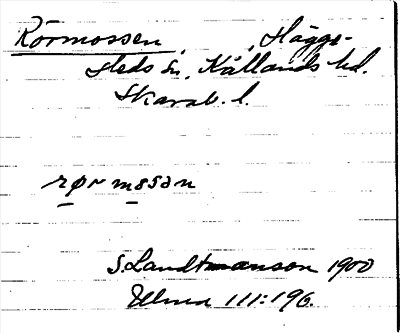 Rörmossen, , Hägge-
steds sn, Kållands hd.
Skarab. l.
rør mosən
S. Landtmanson 1900
Ulma 111:196.